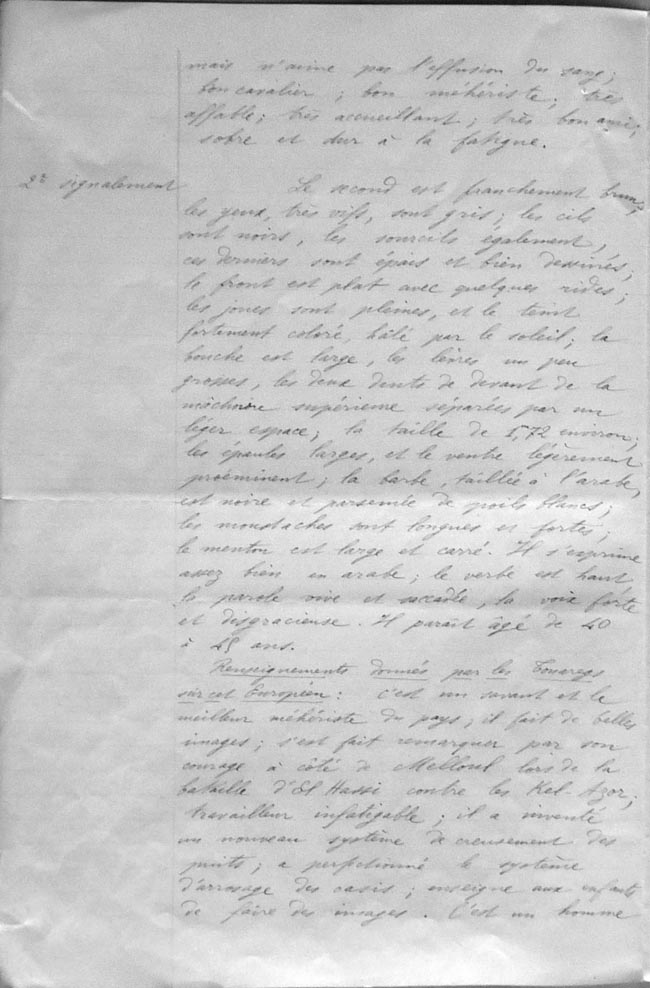 mais n'aime pas l'effusion du sang;
bon cavalier; bon méhériste; très
affable; très accueillant; très bon ami;
sobre et dur à la fatigue.
2e signalement
Le second est franchement brun,
les yeux, très vifs, sont gris; les cils
sont noirs, les sourcils également,
ces derniers sont épais et bien dessinés;
le front est plat avec quelques rides;
les joues sont pleines, et le teint
fortement coloré, hâlé par le soleil; la
bouche est large, les lèvres un peu
grosses, les deux dents de devant de la
mâchoire supérieure séparées par un
léger espace; la taille de 1,72 environ;
les épaules larges, et le ventre légèrement
proéminent; la barbe, taillée à l'arabe,
est noire et parsemée de poils blancs;
les moustaches sont longues et fortes;
le menton est large et carré. Il s'exprime
assez bien en arabe; le verbe est haut,
la parole vive et saccadée, la voix forte
et disgracieuse. Il paraît âgé de 40
à 45 ans.
Renseignements donnés par les Touaregs
sur cet Européen: c'est un savant et le
meilleur méhériste du pays; il fait de belles
images; s'est fait remarquer par son
courage à côté de Melloul lors de la
bataille d'El Hassi contre les Kel-Azor;
travailleur infatigable; il a inventé
un nouveau système de creusement des
puits; a perfectionné le système
d'arrosage des oasis; enseigne aux enfants
de faire des images. C'est un homme